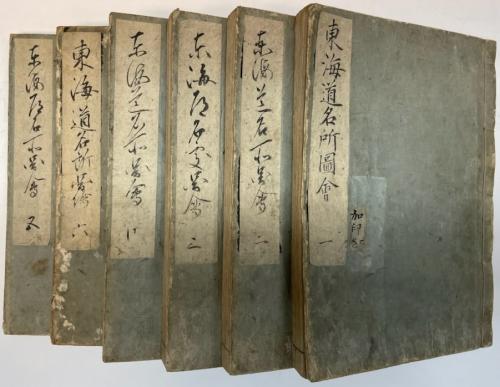 東海道名所圖會 一
加印
東海道名所圖會 二
東海道名所圖會 三
東海道名所圖會
東海道名所圖繪 六
東海道名所圖會 五